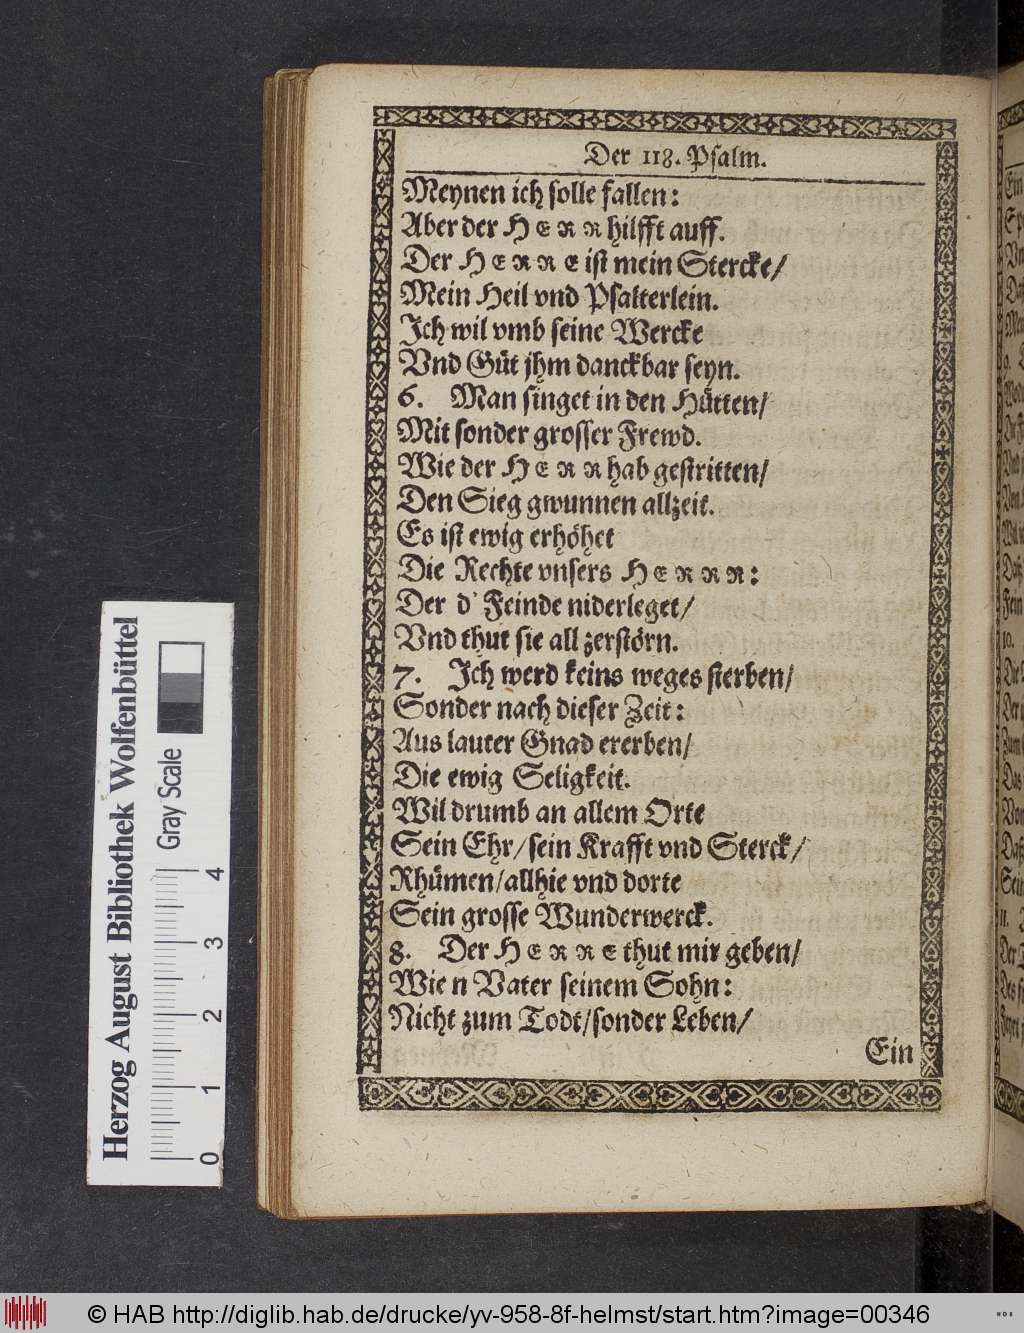 Der 118. Psalm.
Meynen ich solle fallen:
Aber der HERR hilfft auff.
Der HERRE ist mein Stercke/
Mein Heil vnd Psalterlein.
Ich wil vmb seine Wercke
Vnd Güt jhm danckbar seyn.
6. Man singet in den Hütten/
Mit sonder grosser Frewd.
Wie der HERR hab gestritten/
Den Sieg gwunnen allzeit.
Es ist ewig erhöhet
Die Rechte vnsers HERRN:
Der d' Feinde niderleget/
Vnd thut sie all zerstörn.
7. Ich werd keins weges sterben/
Sonder nach dieser Zeit:
Aus lauter Gnad ererben/
Die ewig Seligkeit.
Wil drumb an allem Orte
Sein Ehr/sein Krafft vnd Sterck/
Rhümen/allhie vnd dorte
Sein grosse Wunderwerck.
8. Der HERRE thut mir geben/
Wie n Vater seinem Sohn:
Nicht zum Todt/sonder Leben/
Ein
Herzog August Bibliothek Wolfenbüttel
Gray Scale
0 1 2 3 4
© HAB http://diglib.hab.de/drucke/yv-958-8f-helmst/start.htm?image=00346